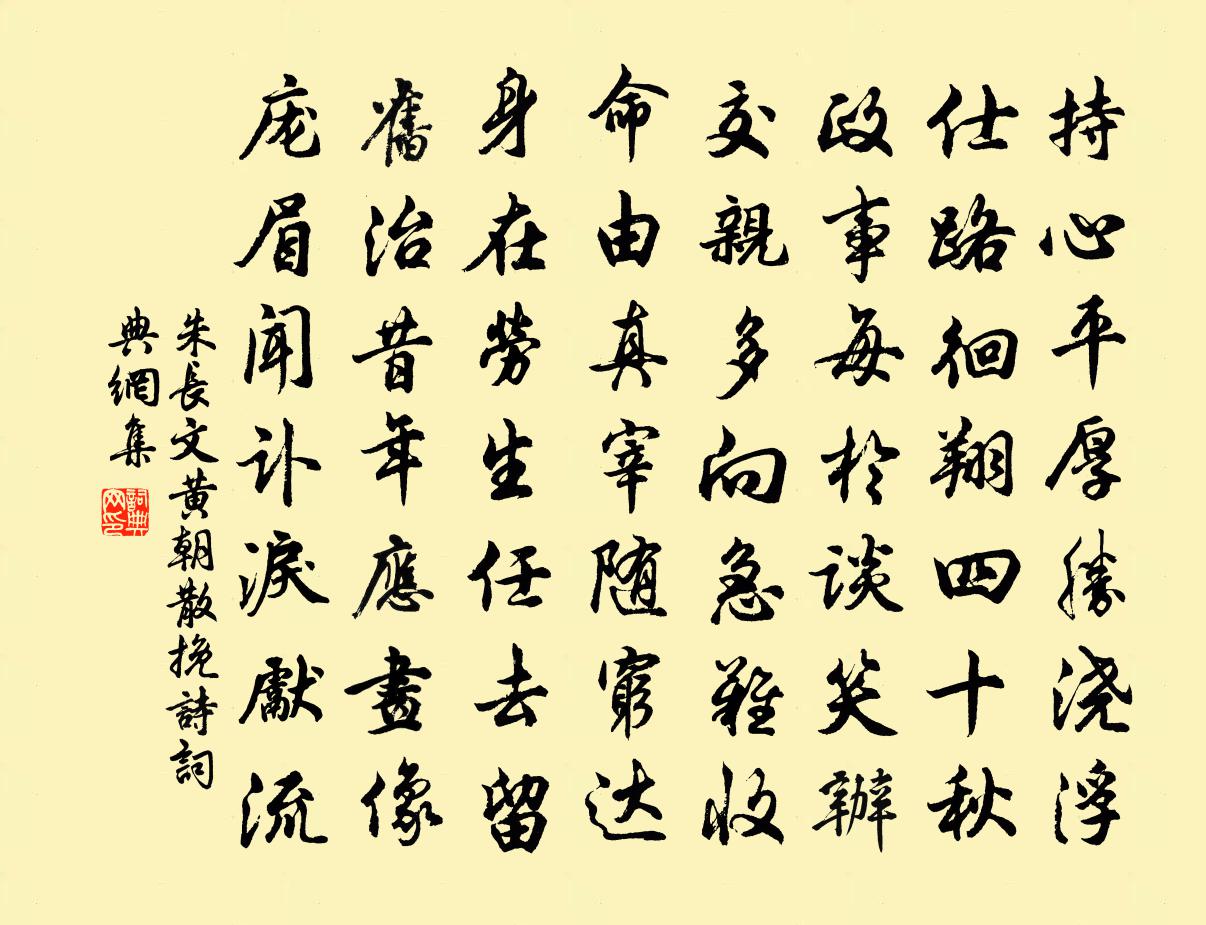 持心平厚勝浇浮
仕路徊翔四十秋
政事每於谈笑辦
交親多向急難收
命由真宰随窮达
身在勞生任去留
舊治昔年應畫像
庞眉闻讣淚獻流
朱長文黄朝散挽詩詞
典網集
詞典
网印